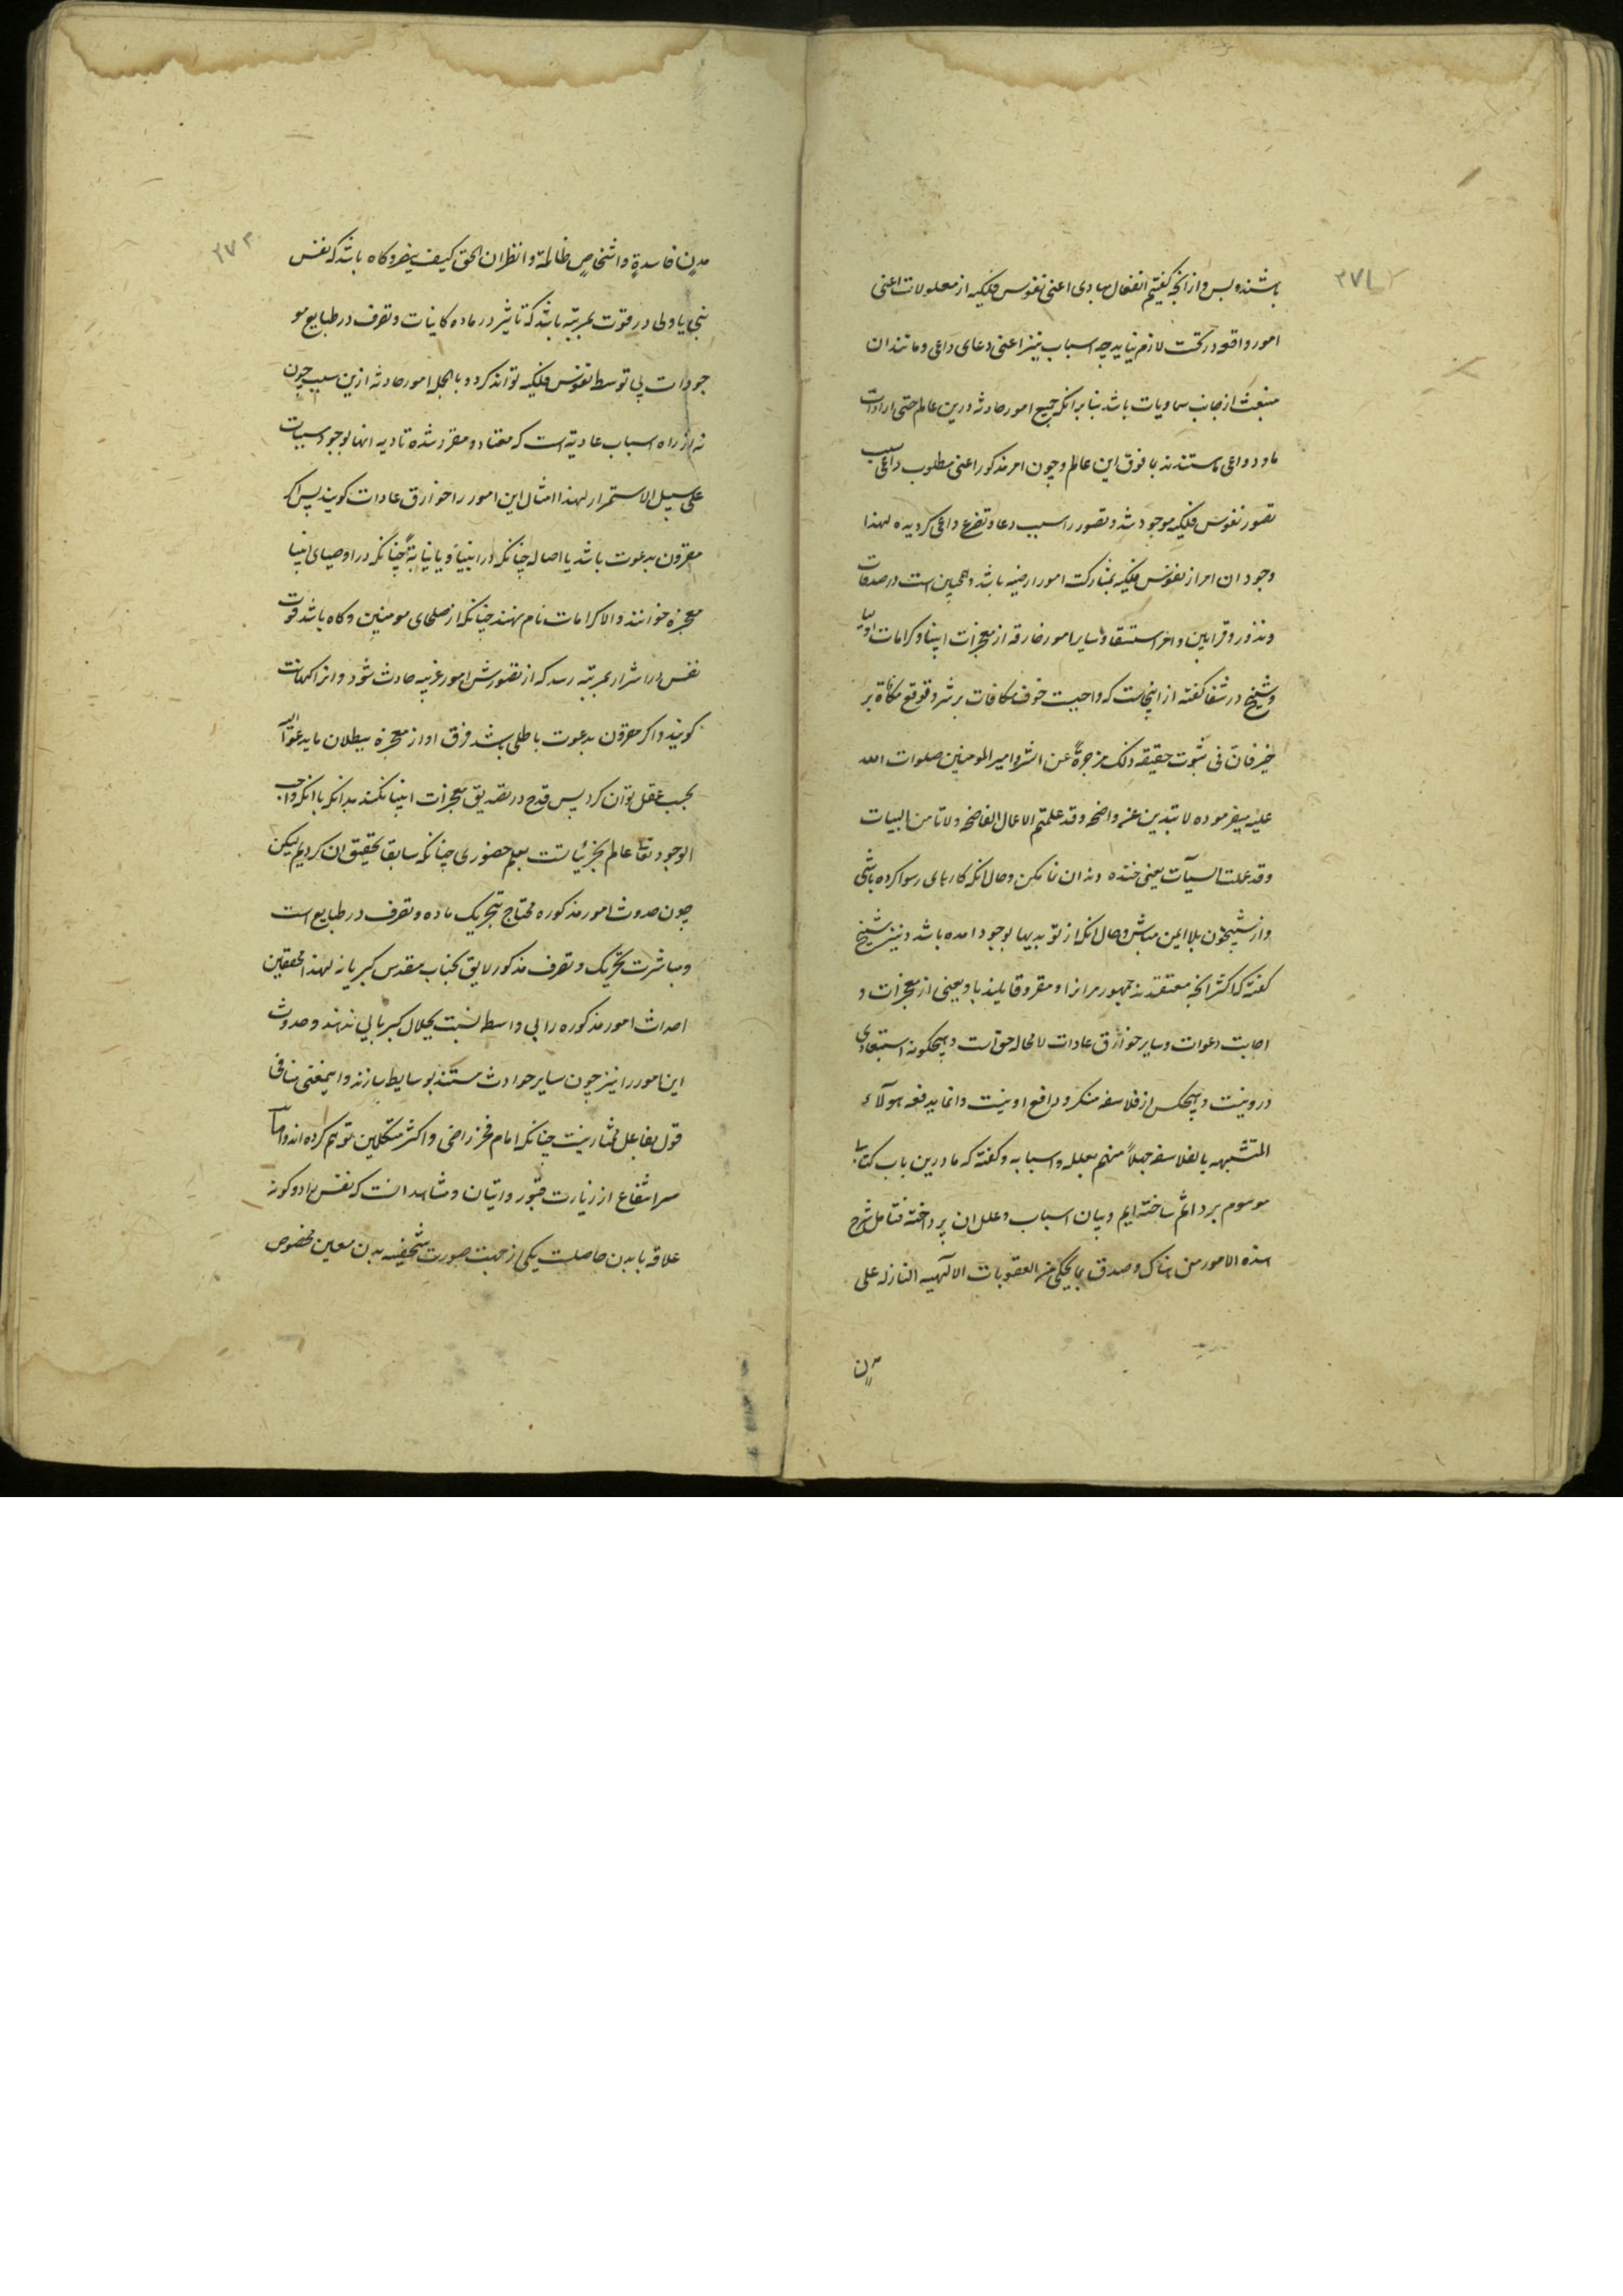 ۲۷۲
باشند و بس و از آنچه گفتیم انفعال مبادی اعنی نفوس فلکیه از معلولات اعنی
امور واقعه در تحت لازم نیاید چه اسباب نیز اعنی دعای داعی و مانند ان
منبعث از جانب سماویات باشد بنا بر انکه جمیع امور حادثه درین عالم حتی ارادات
ما و دواعی ما مستندند بما فوق این عالم و چون امر مذکور اعنی مطلوب داعی سبب
تصور نفوس فلکیه موجود شد و تصور را سبب دعا و تضرع داعی کردیده لهذا
وجود ان امر از نفوس فلکیه بمشارکت امور ارضیه باشد و همچنین است در صدقات
و نذور و قرابین و امر استسقا و سایر امور خارقه از معجزات انبیا و کرامات اولیا
و شیخ در شفا کفته از اینجاست که واجبست خوف مکافات بر شر و توقع مکافاة بر
خیر فان فی ثبوت حقیقه ذلک مزجرةً عن الشر و امیر المومنین صلوات الله
علیه میفرموده لا تبدین عن واضحه وقد علمتم الاعمال الفاضحه ولا تامن البیات
وقد عملت السیآت یعنی خنده دندان نما مکن و حال انکه کارهای رسوا کرده باشی
و از شبیخون بلا ایمن مباش و حال انکه از تو بدیها بوجود امده باشد و نیز شیخ
کفته که اکثر انچه معتقدند جمهور مر انرا و مقر و قایلند باو یعنی از معجزات و
اجابت دعوات و سایر خوارق عادات لا محاله حق است و هیچکونه استبعادی
درو نیست و هیچکس از فلاسفه منکر و دافع او نیست و انما یدفعه هولآء
المتشبهه بالفلاسفه جهلاً منهم بعلله و اسبابه و کفته که ما درین باب کتابی
موسوم ببر و اثم ساخته ایم و بیان اسباب و علل ان پرداخته فتامل شرح
هذه الامور من هناک و صدق بما یحکی من العقوبات الالهیه النازله علی
مدن
۲۷۳
مدنٍ فاسدةٍ و اشخاصٍ ظالمة و انظر ان الحق کیف ینصر و کاه باشد که نفس
نبی یا ولی در قوت بمرتبه باشد که تاثیر در ماده کاینات و تصرف در طبایع مو
جودات بی توسط نفوس فلکیه تواند کرد و بالجمله امور حادثه ازین سبب چون
نه از راه اسباب عادیة است که معتاد و مقرر شده تادیه انها بوجود مسببات
علی سبیل الاستمرار لهذا امثال این امور را خوارق عادات کویند پس اکر
مقرون بدعوت باشد یا اصالة چنانکه در انبیا و یا نیابةً چنانکه در اوصیای انبیا
معجزه خوانند و الا کرامات نام نهند چنانکه از صلحای مومنین و کاه باشد قوت
نفس در اشرار بمرتبه رسد که از تصورش امور غریبه حادث شود و انرا کهانت
کویند و اکر مقرون بدعوت باطلی باشد فرق او از معجزه ببطلان ما یدعوا الیه
بحسب عقل توان کرد پس قدح در تصدیق معجزات انبیا نکند بدانکه با انکه واجب
الوجود تعا عالم بجزئیاتست بعلم حضوری چنانکه سابقا تحقیق ان کردیم لیکن
چون حدوث امور مذکوره محتاج بتحریک ماده و تصرف در طبایع است
و مباشرت تحریک و تصرف مذکور لایق بجناب مقدس کبریا نه لهذا محققین
احداث امور مذکوره را بی واسطه نسبت بجلال کبریایی ندهند و حدوث
این امور را نیز چون سایر حوادث مستند بوسایط سازند و اینمعنی منافی
قول بفاعل مختار نیست چنانکه امام فخر رازی و اکثر متکلمین توهم کرده اند و اما
سر انتفاع از زیارت قبور و اتیان و مشاهد انست که نفس را دو کونه
علاقه با بدن حاصلست یکی از جهت صورت شخصیه بدن معین مخصوص